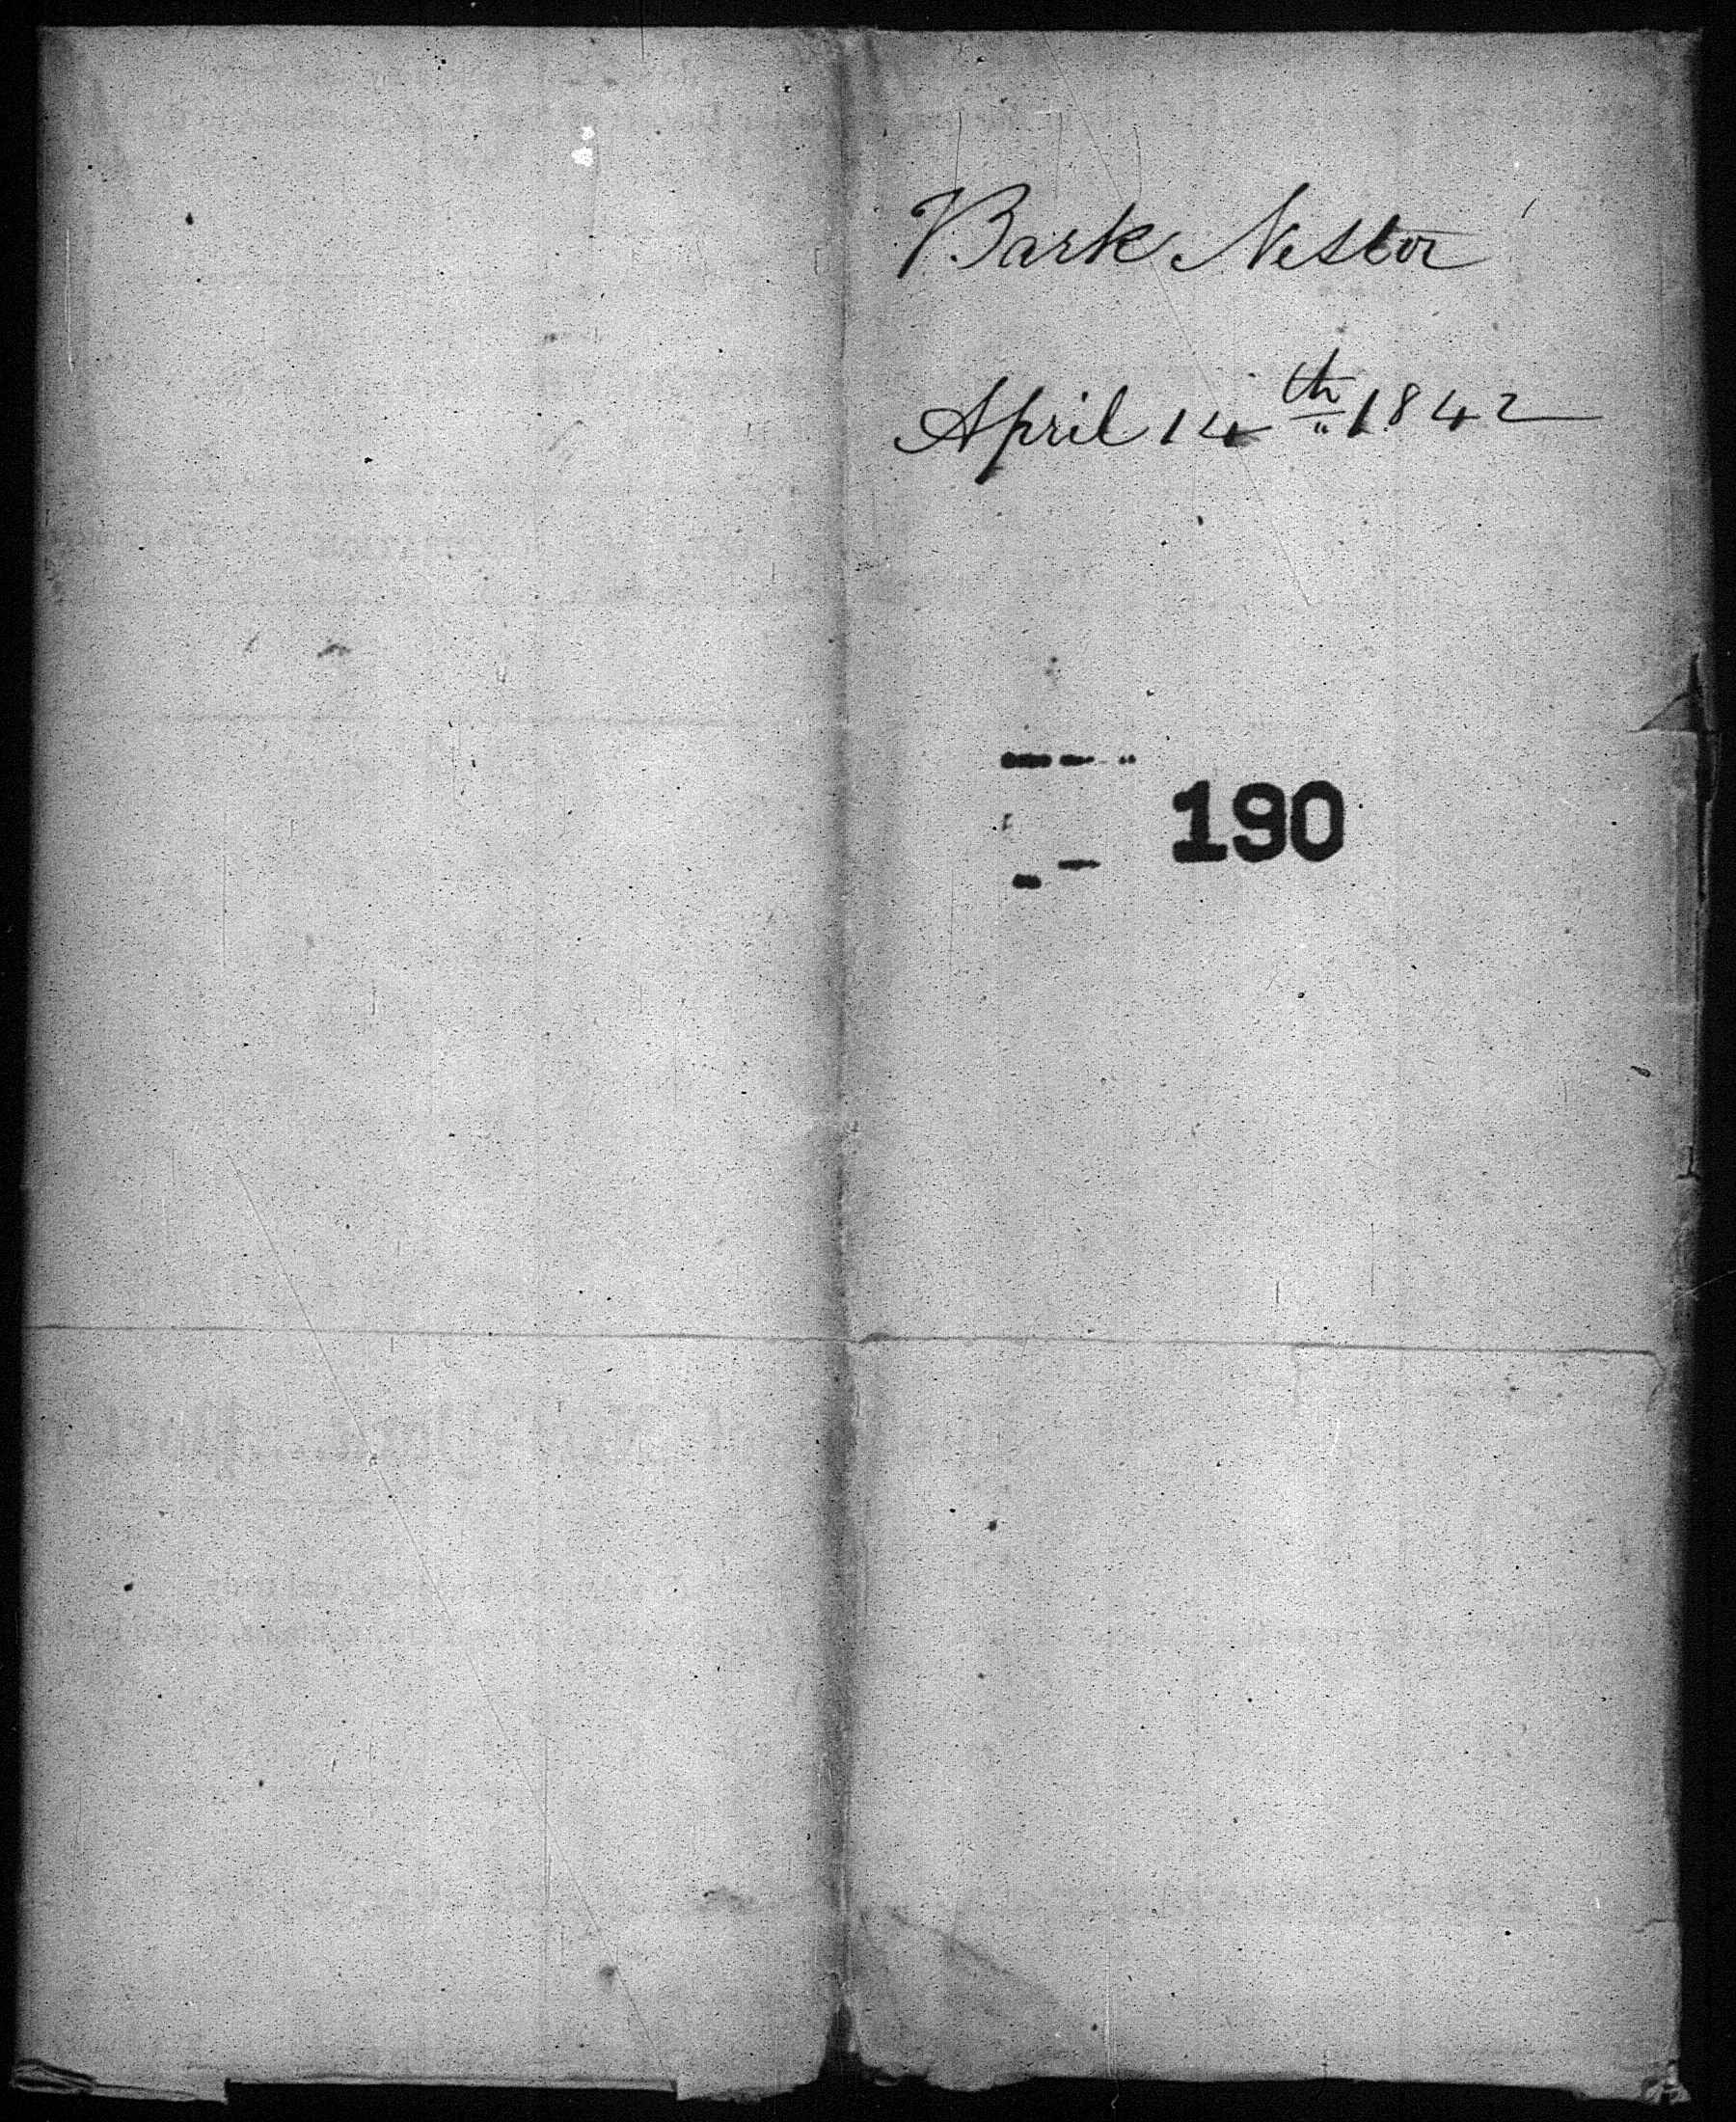 Bark Nestor
April 14th 1842
190